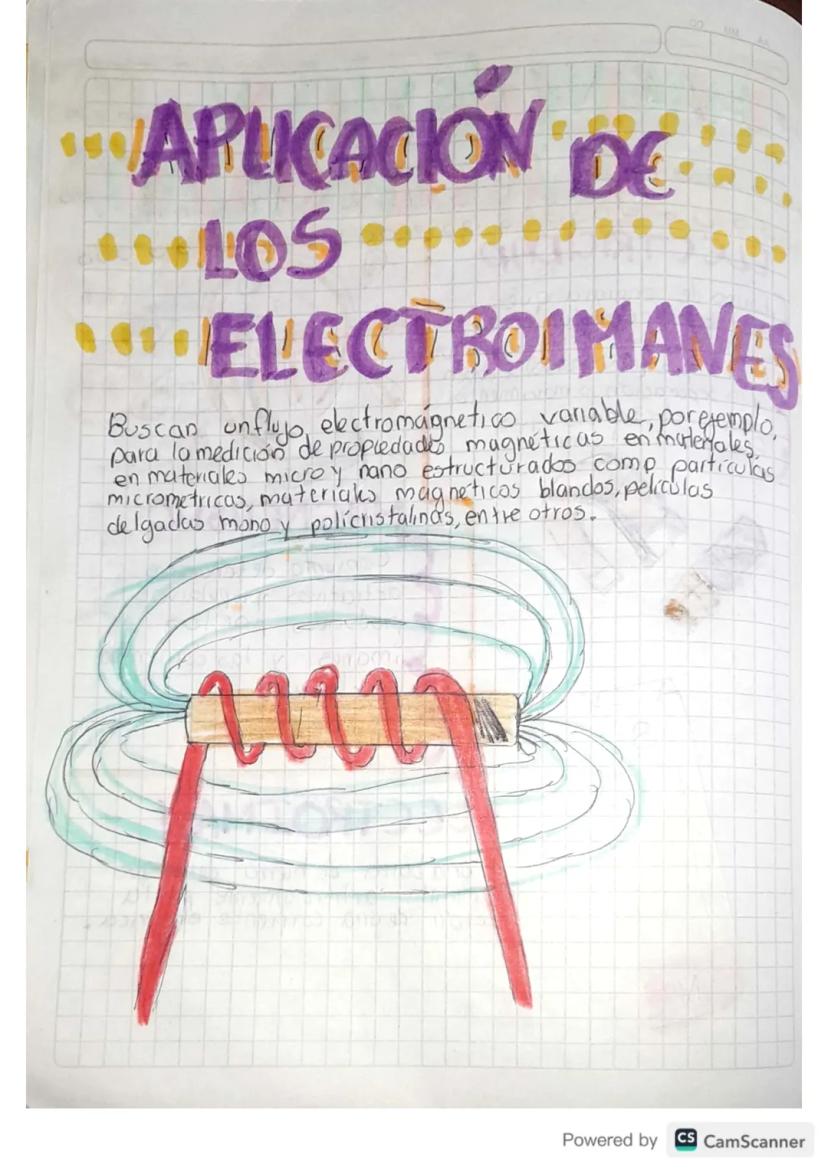 APLICACIÓN DE
LOS
ELECTROIMANES
Buscan un flujo electromágnetico variable, por ejemplo,
para la medición de propiedades magnéticas en materiales,
en materiales micro y nano estructurados como partículas
micrometricas, materiales magneticos blandos, películas
delgadas mono y policristalinas, entre otros.
Powered by CS CamScanner